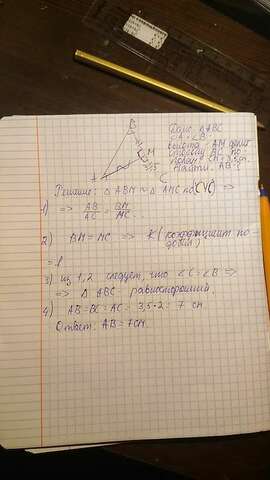 B
M
3,5
A
C
Дано: △ABC
∠A = ∠B
AM делит
сторону BC по-
полам. CM = 3,5см.
Найти: AB-?
Решение: △ ABM ~ △ AMC по (УУ) ⇒
1) ⇒ AB/AC = BM/MC
2) BM = MC ⇒ K (коэффициент по-
добия)
= 1
3) из 1, 2 следует, что ∠C = ∠B ⇒
⇒ △ ABC - равносторонний.
4) AB = BC = AC = 3,5 · 2 = 7 см
Ответ: AB = 7см.